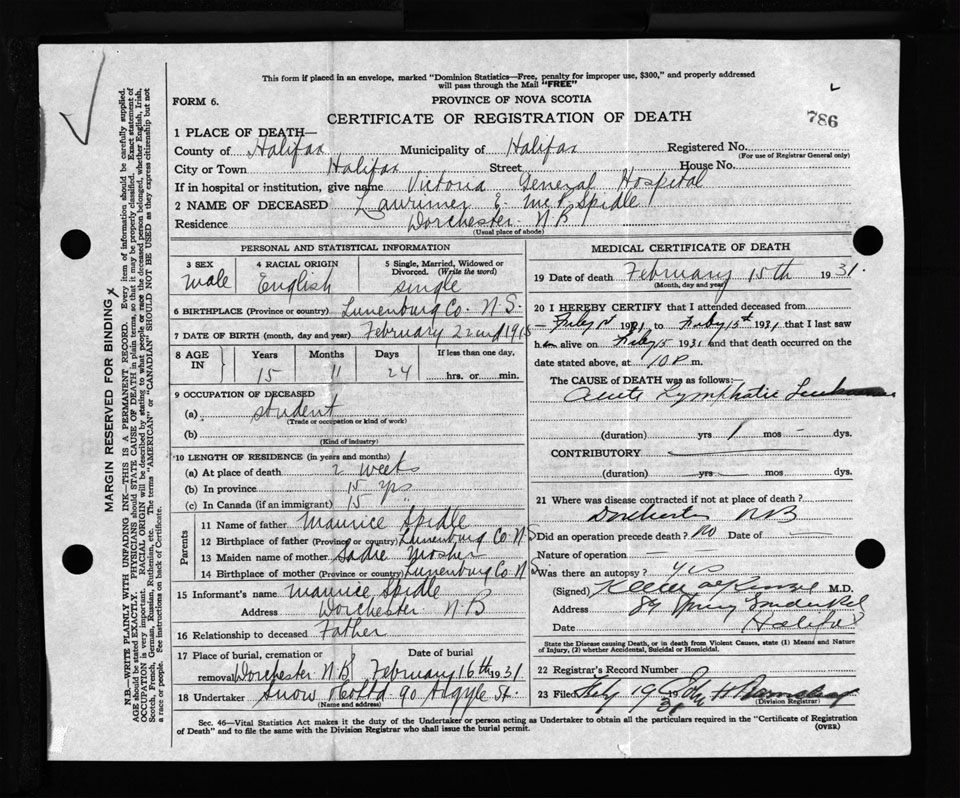 This form if placed in an envelope, marked "Dominion Statistics—Free, penalty for improper use, $300," and properly addressed
will pass through the Mail "FREE"
FORM 6.
PROVINCE OF NOVA SCOTIA
CERTIFICATE OF REGISTRATION OF DEATH
786
1 PLACE OF DEATH—
County of Halifax Municipality of Halifax Registered No.
(For use of Registrar General only)
City or Town Halifax Street House No.
If in hospital or institution, give name Victoria General Hospital
2 NAME OF DECEASED E. Spidle
Residence Dorchester N B
(Usual place of abode)
PERSONAL AND STATISTICAL INFORMATION
3 SEX 4 RACIAL ORIGIN 5 Single, Married, Widowed or
Divorced. (Write the word)
Male English single
6 BIRTHPLACE (Province or country) Lunenburg Co. N S.
7 DATE OF BIRTH (month, day and year) February 22nd 1915
8 AGE IN Years Months Days If less than one day,
15 11 24 hrs. or min.
9 OCCUPATION OF DECEASED
(a) student
(Trade or occupation or kind of work)
(b)
(Kind of industry)
10 LENGTH OF RESIDENCE (in years and months)
(a) At place of death 2 weeks
(b) In province 15 yrs
(c) In Canada (if an immigrant) 15 "
Parents
11 Name of father Maurice Spidle
12 Birthplace of father (Province or country) Lunenburg Co. N S
13 Maiden name of mother Sadie Mosher
14 Birthplace of mother (Province or country) Lunenburg Co. N S
15 Informant's name Maurice Spidle
Address Dorchester N B
16 Relationship to deceased Father
17 Place of burial, cremation or Date of burial
removal Dorchester N B February 16th 1931
18 Undertaker Snow & Co Ltd 90 Argyle St.
(Name and address)
MEDICAL CERTIFICATE OF DEATH
19 Date of death February 15th 1931.
(Month, day and year)
20 I HEREBY CERTIFY that I attended deceased from
1931 to Feby 15th 1931 that I last saw
him alive on Feby 15 1931 and that death occurred on the
date stated above, at 10 P m.
The CAUSE of DEATH was as follows:
Acute Lymphatic Leukaemia
(duration) yrs 1 mos – dys.
CONTRIBUTORY
(duration) yrs mos dys.
21 Where was disease contracted if not at place of death?
Dorchester N B
Did an operation precede death? No Date of —
Nature of operation — —
Was there an autopsy? yes
(Signed) M.D.
Address 84 Spring Garden Rd
Halifax
Date
State the Disease causing Death, or in death from Violent Causes, state (1) Means and Nature
of Injury, (2) whether Accidental, Suicidal or Homicidal.
22 Registrar's Record Number
23 Filed Feby 19 31
(Division Registrar)
Sec. 46—Vital Statistics Act makes it the duty of the Undertaker or person acting as Undertaker to obtain all the particulars required in the "Certificate of Registration
of Death" and to file the same with the Division Registrar who shall issue the burial permit.
(OVER)
MARGIN RESERVED FOR BINDING
N.B.—WRITE PLAINLY WITH UNFADING INK—THIS IS A PERMANENT RECORD. Every item of information should be carefully supplied.
AGE should be stated EXACTLY. PHYSICIANS should STATE CAUSE OF DEATH in plain terms, so that it may be properly classified. Exact statement of
OCCUPATION is very important. RACIAL ORIGIN will be described by stating to what people or race the deceased person belonged, whether English, Irish,
Scotch, French, German, Russian, Ruthenian, etc. The terms "AMERICAN" or "CANADIAN" SHOULD NOT BE USED as they express citizenship but not
a race or people. See instructions on back of Certificate.